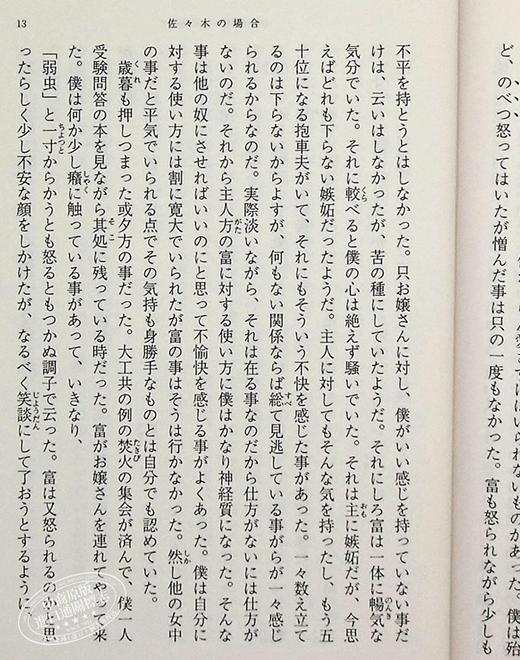 にはいられないものがあった。僕は殆
ど、のべつ怒ってはいたが憎んだ事は只の一度もなかった。富も怒られながら少しも
13 佐々木の場合
不平を持とうとはしなかった。只お嬢さんに対し、僕がいい感じを持っていない事だ
けは、云いはしなかったが、苦の種にしていたようだ。それにしろ富は一体に暢気な
気分でいた。それに較べると僕の心は絶えず騒いでいた。それは主に嫉妬だが、今思
えばどれも下らない嫉妬だったようだ。主人に対してもそんな気を持ったし、もう五
十位になる抱車夫がいて、それにもそういう不快を感じた事があった。一々数え立て
るのは下らないからよすが、何もない関係ならば総て見逃している事がらが一々感じ
られるからなのだ。実際淡いながら、それは在る事なのだから仕方がないには仕方が
ないのだ。それから主人方の富に対する使い方に僕はかなり神経質になった。そんな
事は他の奴にさせればいいのにと思って不愉快を感じる事がよくあった。僕は自分に
対する使い方には割に寛大でいられたが富の事はそうは行かなかった。然し他の女中
の事だと平気でいられる点でその気持も身勝手なものとは自分でも認めていた。
歳暮も押しつまった或夕方の事だった。大工共の例の焚火の集会が済んで、僕一人
受験問答の本を見ながら其処に残っている時だった。富がお嬢さんを連れてやって来
た。僕は何か少し癪に触っている事があって、いきなり、
「弱虫」と一寸からかうとも怒るともつかぬ調子で云った。富は又怒られるのかと思
ったらしく少し不安な顔をしかけたが、なるべく笑談にして了おうとするように、